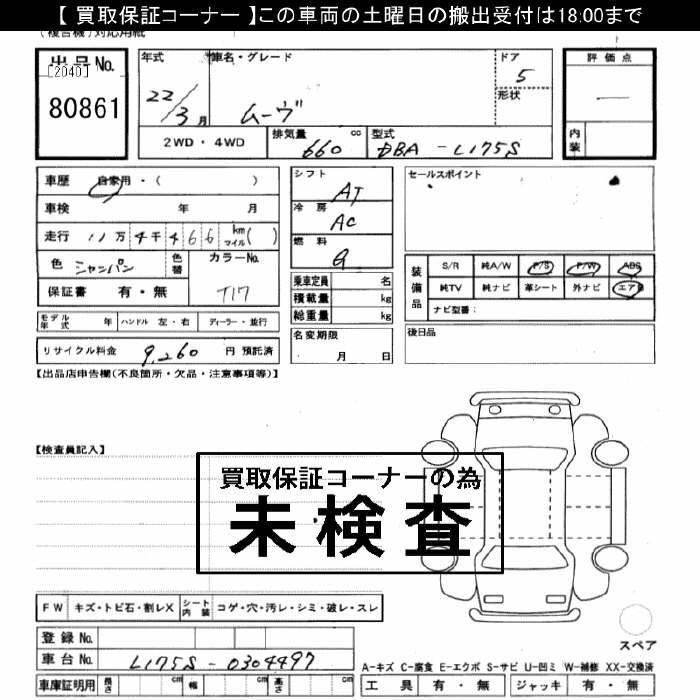 【 買取保証コーナー 】この車両の土曜日の搬出受付は18:00まで
(複合機)対応用紙
出品No. [2040] 80861
年式 22/3月
車名・グレード ムーヴ
ドア 5
形状
2WD・4WD
排気量 660 cc
型式 DBA-L175S
評価点 —
内装
車歴 自家用・( )
車検 年 月
走行 11万4千466 km マイル( )
色 シャンパン 色替 カラーNo. T17
保証書 有・無
モデル年式 年 ハンドル 左・右 ディーラー・並行
リサイクル料金 9,260 円 預託済
シフト AT
冷房 AC
燃料 G
乗車定員 名
積載量 kg
総重量 kg
名変期限 月 日
セールスポイント
装備品 S/R 純A/W P/S P/W ABS
純TV 純ナビ 革シート 外ナビ エアB
ナビ型番:
後日品
【出品店申告欄(不良箇所・欠品・注意事項等)】
【検査員記入】
買取保証コーナーの為
未検査
FW キズ・トビ石・割レX シート内装 コゲ・穴・汚レ・シミ・破レ・スレ
登録No.
車台No. L175S-0304497
車庫証明用 長さ cm 幅 cm 高さ cm
スペア
A-キズ C-腐食 E-エクボ S-サビ U-凹ミ W-補修 XX-交換済
工具 有・無 ジャッキ 有・無